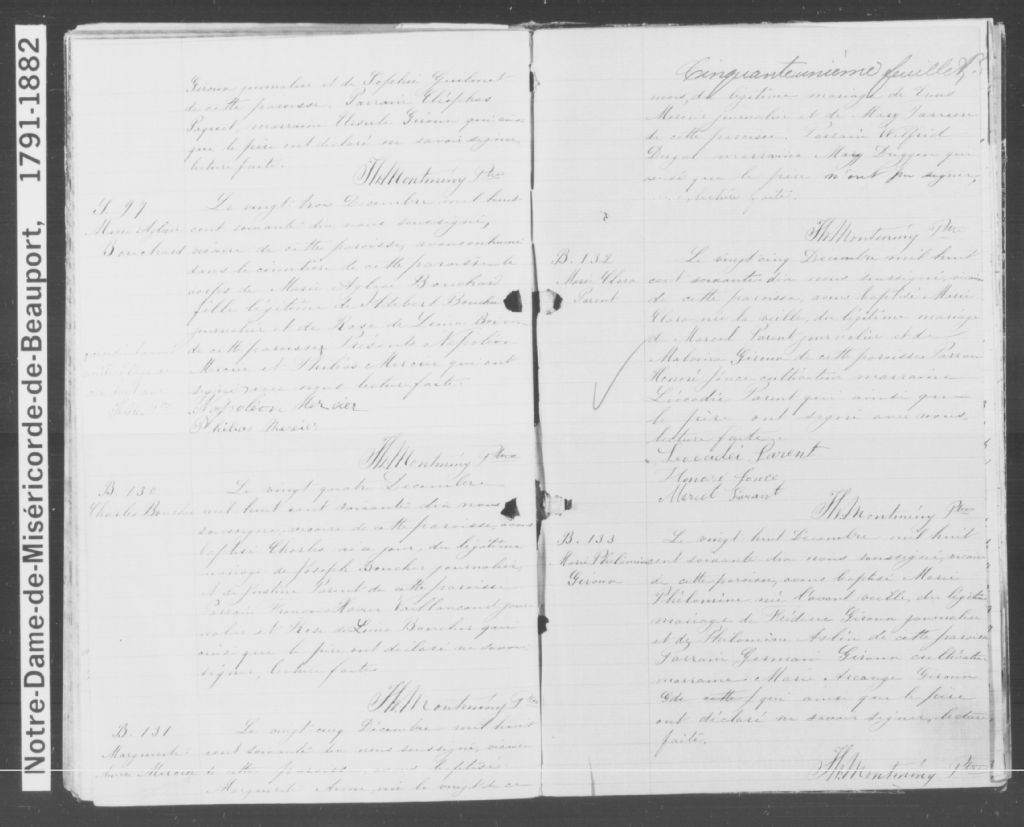 Notre-Dame-de-Miséricorde-de-Beauport, 1791-1882
Giroux journalier et de Sophie
de cette paroisse. Parrain Cléophas
marraine Ursule Giroux qui ainsi
que le père ont déclaré ne savoir signer
lecture faite.
Th. Montminy Ptre
S. 97
Marie Aglaé
Bouchard
Le vingt trois Decembre mil huit
cent soixante dix nous soussigné,
vicaire de cette paroisse, avons inhumé
dans le cimetière de cette paroisse le
corps de Marie Aglaé Bouchard
fille légitime de Bouchard
journalier et de Rose de Lima
de cette paroisse. Présents Napoléon
Mercier et Philias Mercier qui ont
signé avec nous lecture faite.
Napoléon Mercier
Philias Mercier
Th. Montminy Ptre
B. 130
Charles Boucher
Le vingt quatre Decembre
mil huit cent soixante dix nous
soussigné, vicaire de cette paroisse, avons
baptisé Charles né ce jour, du légitime
mariage de Joseph Boucher journalier
et de Justine Parent de cette paroisse
Parrain François Xavier Vaillancourt jour
nalier et Rose de Lima Boucher qui
ainsi que le père ont déclaré ne savoir
signer, lecture faite.
Th. Montminy Ptre
B. 131
Marguerite
Anne Mercier
Le vingt-cinq Décembre mil huit
cent soixante dix nous soussigné, vicaire
de cette paroisse avons baptisé
Marguerite Anne, née le vingt de ce
Cinquanteunième feuillet
mois, du légitime mariage de
Mercier journalier et de Mary
de cette paroisse. Parrain Wilfrid
Dugal marraine Mary Duggan qui
ainsi que le père n'ont pu signer,
lecture faite.
Th. Montminy Ptre
B. 132
Marie Clara
Parent
Le vingt cinq Decembre mil huit
cent soixante dix nous soussigné, vicaire
de cette paroisse, avons baptisé Marie
Clara née la veille, du légitime mariage
de Marcel Parent journalier et de
Malvina Giroux de cette paroisse Parrain
Honoré cultivateur marraine
Léocadie Parent qui ainsi que
le père ont signé avec nous,
lecture faite.
Leocadie Parent
Honoré
Marcel Parant
Th. Montminy Ptre
B. 133
Marie Philomène
Giroux
Le vingt huit Décembre mil huit
cent soixante dix nous soussigné, vicaire
de cette paroisse, avons baptisé Marie
Philomène née l'avant veille, du légitime
mariage de Frédéric Giroux journalier
et de Philomène de cette paroisse
Parrain Germain Giroux cultivateur
marraine Marie Arcange Giroux
de cette qui ainsi que le père
ont déclaré ne savoir signer, lecture
faite.
Th. Montminy Ptre